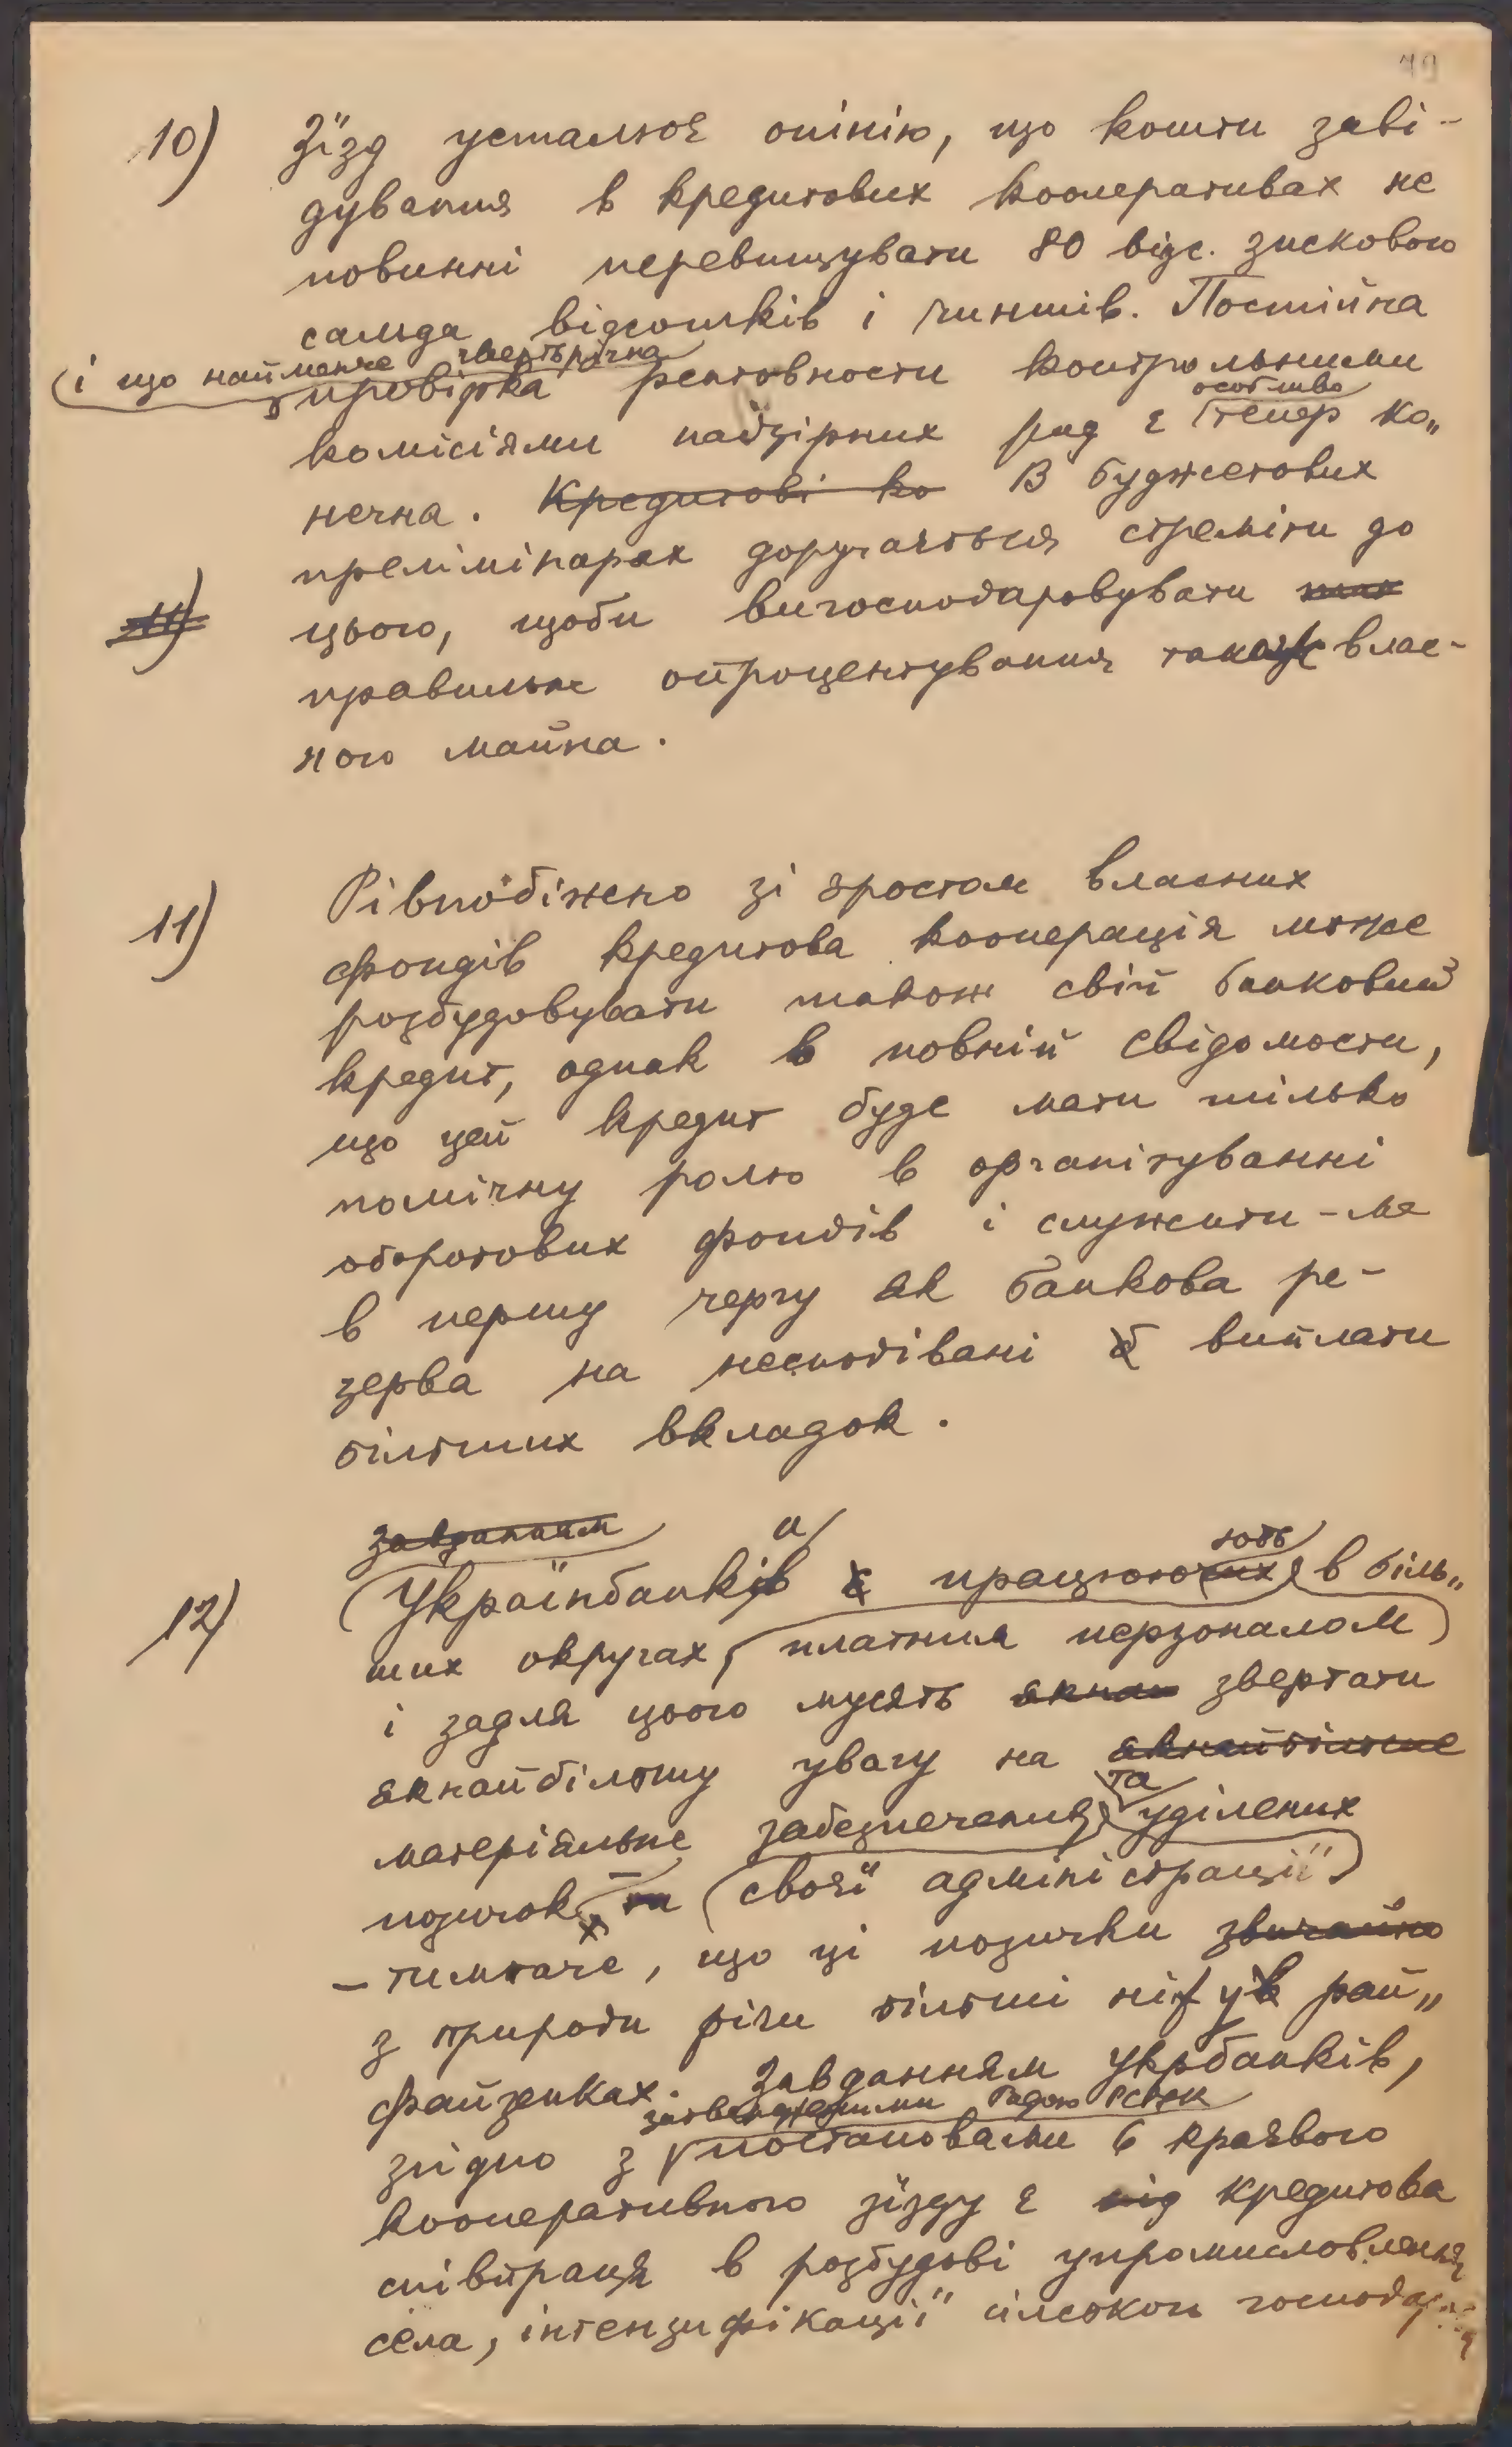 79
10) Зїзд усталює опінію, що кошти заві-
дування в кредитових кооперативах не
повинні перевищувати 80 відс. зискового
сальда відсотків і чиншів. Постійна
(і що найменше чвертьрічна
провірка рентовности контрольними
особливо
комісіями надзірних рад є тепер ко„
нечна. Кредитові ко В буджетових
прелімінарах доручається стреміти до
11) цього, щоби вигосподаровувати так
правильне опроцентування також влас-
ного майна.
11) Рівнобіжено зі зростом власних
фондів кредитова кооперація може
розбудовувати також свій банковий
кредит, однак в повній свідомости,
що цей кредит буде мати тілько
помічну ролю в організуванні
оборотових фондів і служити-ме
в першу чергу як банкова ре-
зерва на несподівані б виплати
більших вкладок.
завданням и ють
12) (Українбанків є працюючих в біль„
ших округах, платним перзоналом)
і задля цього мусять якнай звертати
якнайбільшу увагу на якнайбільше
та
матеріяльне забезпечення уділених
позичок та (своєї адміністрації)
– тимтаче, що ці позички звичайно
з природи річи більші ніж ув рай„
файзенках. Завданням укрбанків,
затвердженими Радою РСУК
згідно з постановами 6 краєвого
кооперативного зїзду є під кредитова
співпраця в розбудові упромисловлення
села, інтензифікації сільського господар